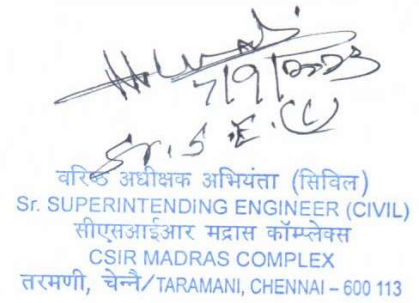 7/9/2023
Sr. S. E. (C)
वरिष्ठ अधीक्षक अभियंता (सिविल)
Sr. SUPERINTENDING ENGINEER (CIVIL)
सीएसआईआर मद्रास कॉम्प्लेक्स
CSIR MADRAS COMPLEX
तरमणी, चेन्नै/TARAMANI, CHENNAI – 600 113